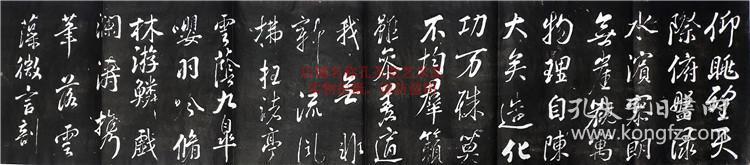 仰眺碧天
際俯盤淥
水濱寥朗
無崖觀寓
物理自陳
大矣造化
功万殊莫
不均羣籟
雖參差適
我亡非
新流風
拂枉渚亭
雲蔭九皋
嚶羽吟脩
林游鱗戲
瀾濤携
筆落雲
藻微言剖
孔夫子旧书网
www.kongfz.com